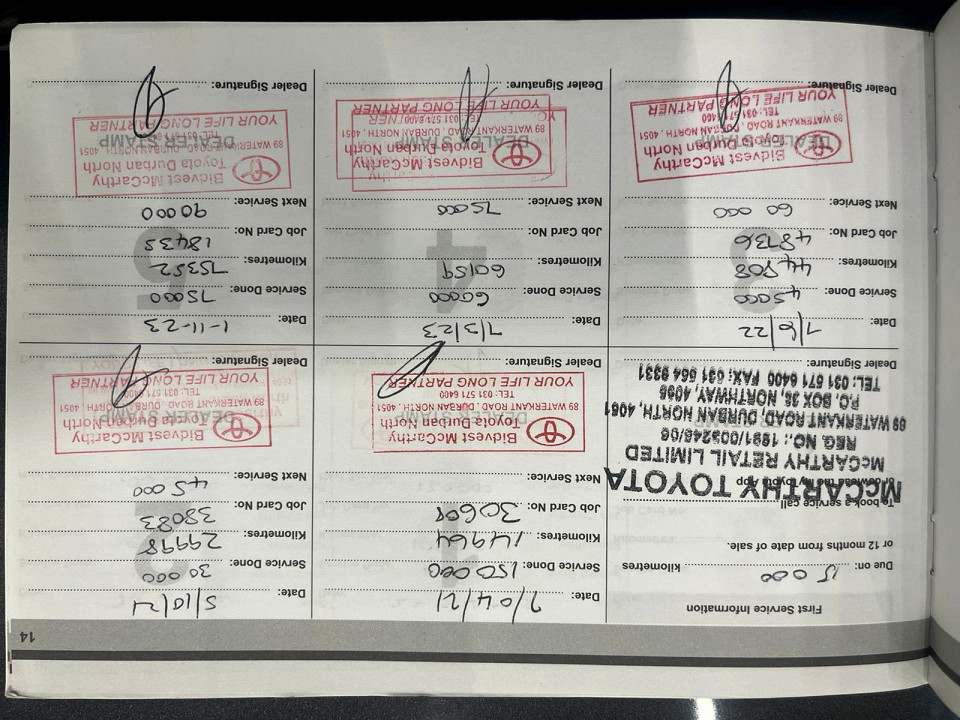 14
First Service Information
Due on: 15 000 kilometres
or 12 months from date of sale.
To book a service call
or download the my toyota App
McCARTHY TOYOTA
McCARTHY RETAIL LIMITED
REG. NO.: 1991/005246/06
89 WATERKANT ROAD, DURBAN NORTH, 4051
P.O. BOX 35 NORTHWAY, 4065
TEL: 031 571 6400 FAX: 031 564 9331
1
Date: 7/04/21
Service Done: 150000
Kilometres: 14964
Job Card No: 30601
Next Service:
DEALER STAMP
Bidvest McCarthy
Toyota Durban North
89 WATERKANT ROAD, DURBAN NORTH, 4051
TEL: 031 571 6400
YOUR LIFE LONG PARTNER
Dealer Signature:
2
Date: 5/10/21
Service Done: 30 000
Kilometres: 29998
Job Card No: 38083
Next Service: 45 000
DEALER STAMP
Bidvest McCarthy
Toyota Durban North
89 WATERKANT ROAD, DURBAN NORTH, 4051
TEL: 031 571 6400
YOUR LIFE LONG PARTNER
Dealer Signature:
3
Date: 7/6/22
Service Done: 45000
Kilometres: 44908
Job Card No: 48736
Next Service: 60 000
DEALER STAMP
Bidvest McCarthy
Toyota Durban North
89 WATERKANT ROAD, DURBAN NORTH, 4051
TEL: 031 571 6400
YOUR LIFE LONG PARTNER
Dealer Signature:
4
Date: 7/3/23
Service Done: 60000
Kilometres: 60159
Job Card No:
Next Service: 75000
DEALER STAMP
Bidvest McCarthy
Toyota Durban North
89 WATERKANT ROAD, DURBAN NORTH, 4051
TEL: 031 571 6400
YOUR LIFE LONG PARTNER
Dealer Signature:
5
Date: 1-11-23
Service Done: 75000
Kilometres: 75352
Job Card No: 18435
Next Service: 90000
DEALER STAMP
Bidvest McCarthy
Toyota Durban North
89 WATERKANT ROAD, DURBAN NORTH, 4051
TEL: 031 571 6400
YOUR LIFE LONG PARTNER
Dealer Signature: